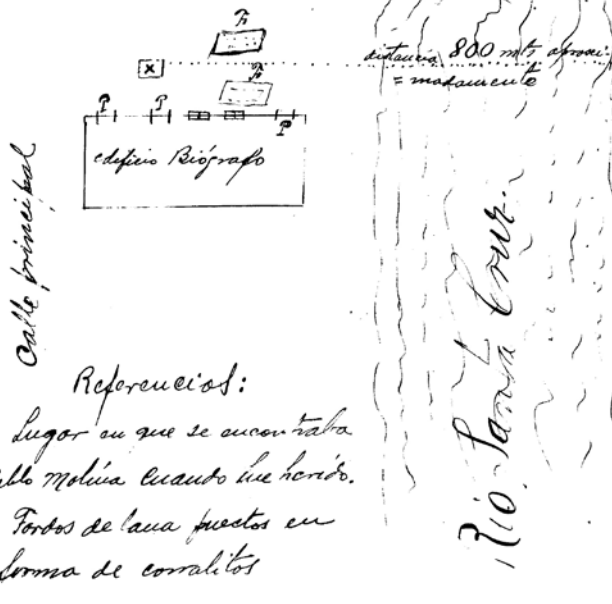 F
distancia 800 mts aproxi
= madamente
x
F
P P P
edificio Biógrafo
Calle principal
Río Santa Cruz.
Referencias:
Lugar en que se encontraba
blo Molina cuando fue herido.
Fardos de lana puestos en
forma de corralitos